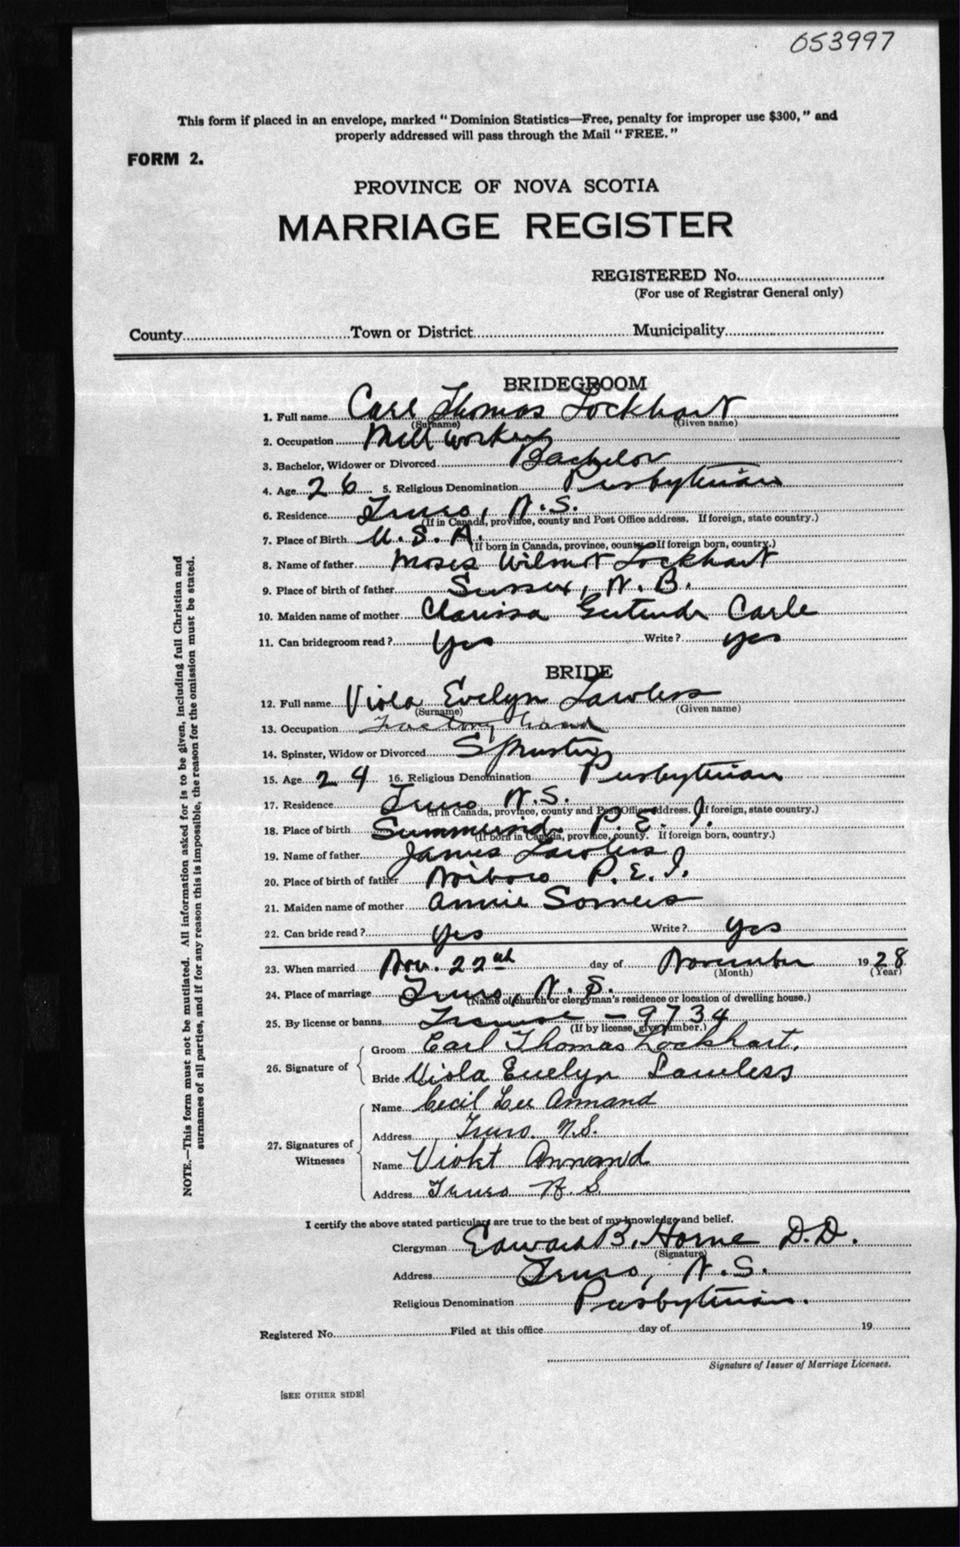 053997
This form if placed in an envelope, marked "Dominion Statistics—Free, penalty for improper use $300," and
properly addressed will pass through the Mail "FREE."
FORM 2.
PROVINCE OF NOVA SCOTIA
MARRIAGE REGISTER
REGISTERED No.
(For use of Registrar General only)
County Town or District Municipality
BRIDEGROOM
1. Full name Carl Thomas Lockhart
(Surname) (Given name)
2. Occupation Mill worker
3. Bachelor, Widower or Divorced Bachelor
4. Age 26 5. Religious Denomination Presbyterian
6. Residence Truro, N.S.
(If in Canada, province, county and Post Office address. If foreign, state country.)
7. Place of Birth U.S.A.
(If born in Canada, province, county. If foreign born, country.)
8. Name of father Moses Wilmot Lockhart
9. Place of birth of father Sussex, N.B.
10. Maiden name of mother Clarissa Gertrude Carle
11. Can bridegroom read? Yes Write? yes
BRIDE
12. Full name Viola Evelyn Lawless
(Surname) (Given name)
13. Occupation Factory hand
14. Spinster, Widow or Divorced Spinster
15. Age 24 16. Religious Denomination Presbyterian
17. Residence Truro N.S.
(If in Canada, province, county and Post Office address. If foreign, state country.)
18. Place of birth Summerside P.E.I.
(If born in Canada, province, county. If foreign born, country.)
19. Name of father James Lawless
20. Place of birth of father P.E.I.
21. Maiden name of mother Annie Somers
22. Can bride read? yes Write? yes
23. When married Nov. 22nd day of November 1928
(Month) (Year)
24. Place of marriage Truro, N.S.
(Name of church or clergyman's residence or location of dwelling house.)
25. By license or banns License - 9734
(If by license, give number.)
26. Signature of
Groom Carl Thomas Lockhart.
Bride Viola Evelyn Lawless
27. Signatures of Witnesses
Name Cecil Lee Annand
Address Truro N.S.
Name Violet Annand
Address Truro N.S
I certify the above stated particulars are true to the best of my knowledge and belief.
Clergyman Edward B. Horne D.D.
(Signature)
Address Truro, N.S.
Religious Denomination Presbyterian.
Registered No. Filed at this office day of 19
Signature of Issuer of Marriage Licenses.
[SEE OTHER SIDE]
NOTE.—This form must not be mutilated. All information asked for is to be given, including full Christian and
surnames of all parties, and if for any reason this is impossible, the reason for the omission must be stated.